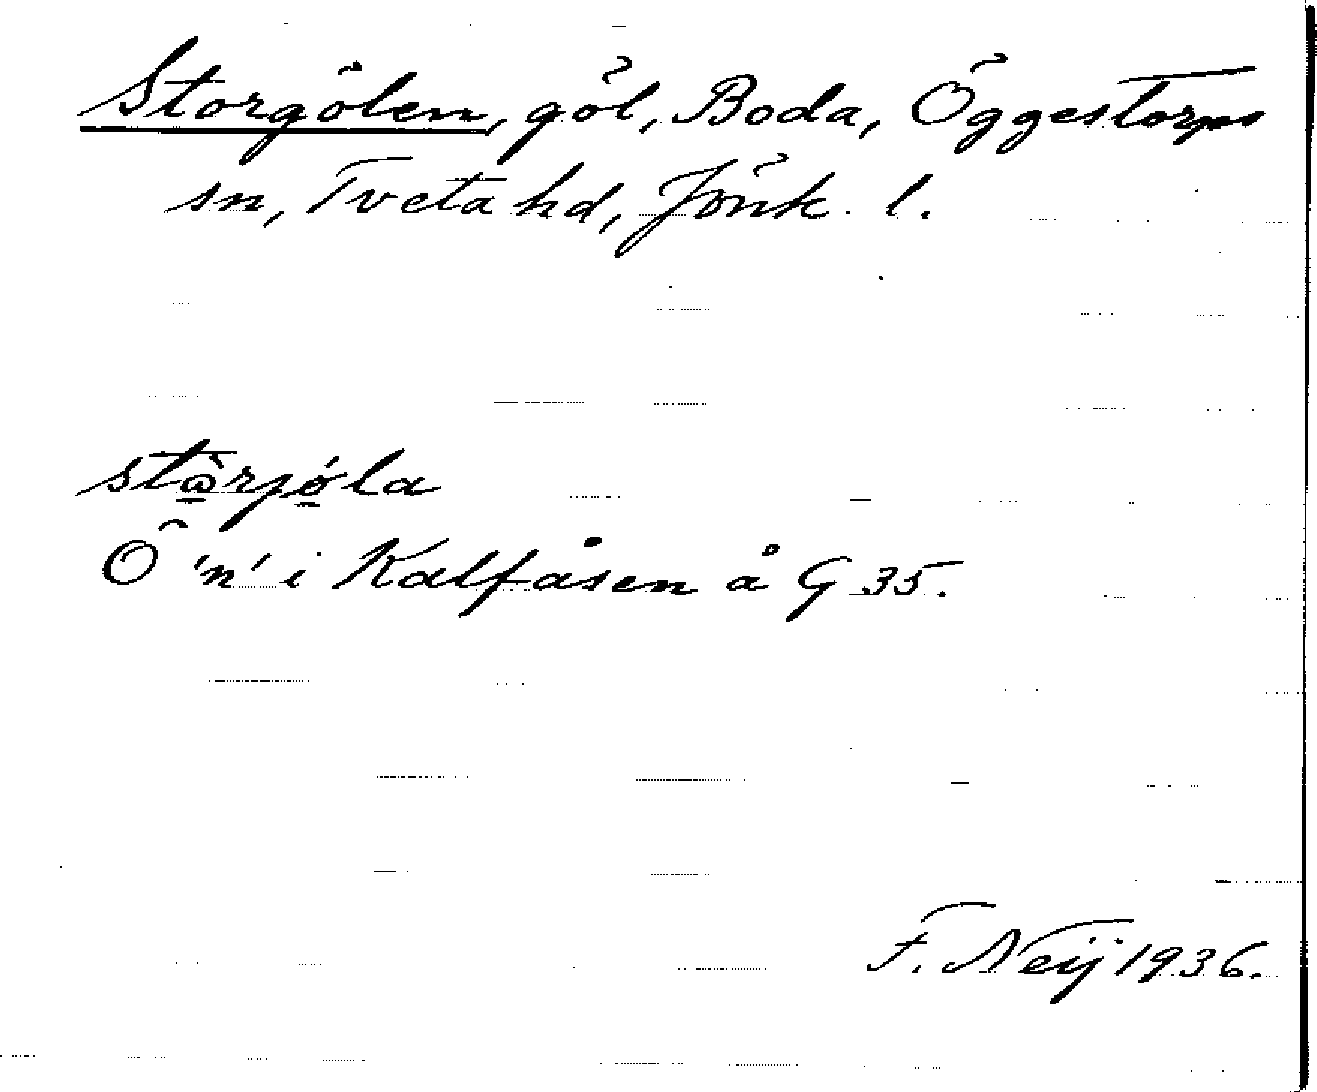 Storgölen, göl, Boda, Öggestorps
sn, Tveta hd, Jönk. l.
stὼ̲rjǿ̲la
Ö 'n' i Kalfåsen å G 35.
F. Neij 1936.